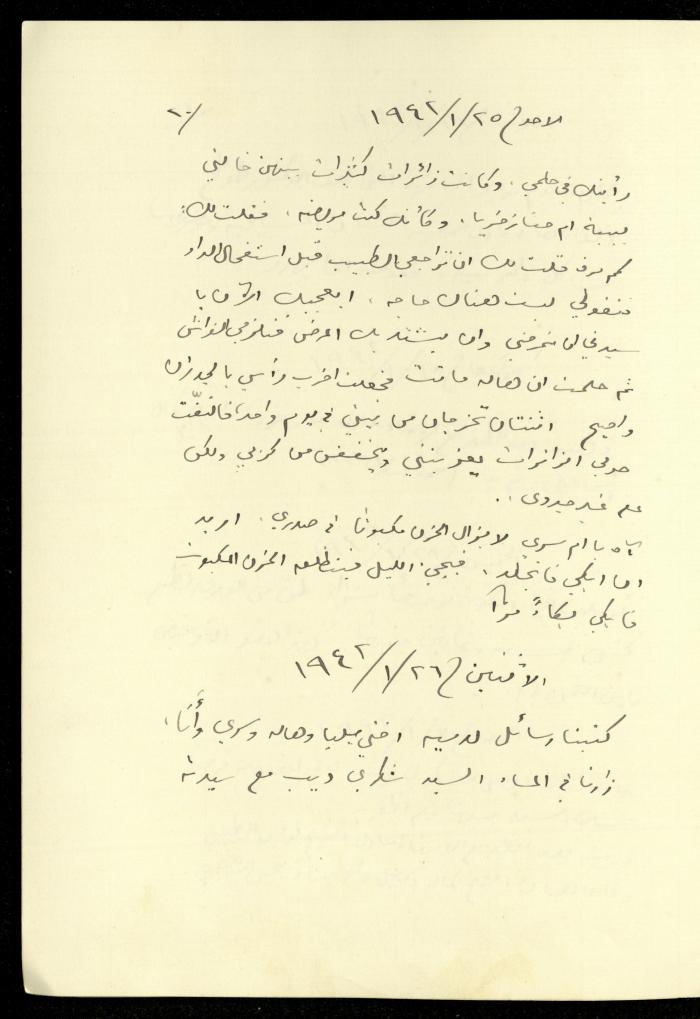 ٢٠/
الاحد في ٢٥/١/١٩٤٢
رأيتك في حلمي، وكانت زائرات كثيرات بينهن خالتي
حبيبة ام وكأنك كنت مريضة، فقلت لك:
كم مرة قلت لك ان تراجعي الطبيب قبل استفحال الداء
فتقولي ليست هناك حاجة، ايعجبك الآن يا
سيدتي ان تمرضي وان يشتد بك المرض فتلزمي الفراش
ثم حلمت ان هاله ماتت فجعلت اضرب رأسي بالجدران
واصيح اثنتان تخرجان من بيتي في يوم واحد، فالتفّت
حولي الزائرات يعزينني ويخففن من كربي ولكن
على غير جدوى..
آه يا ام سري لا يزال الحزن مكبوتا في صدري. اريد
ان ابكي فاتجلد، فيجيئ الليل فينطلق الحزن المكبوت
فابكي بكاءً مراً
الاثنين في ٢٦/١/١٩٤٢
كتبنا رسائل لدميه اختي ميليا وهاله وسري وأنَا،
زارنا في المساء السيد شكري ديب مع سيدته